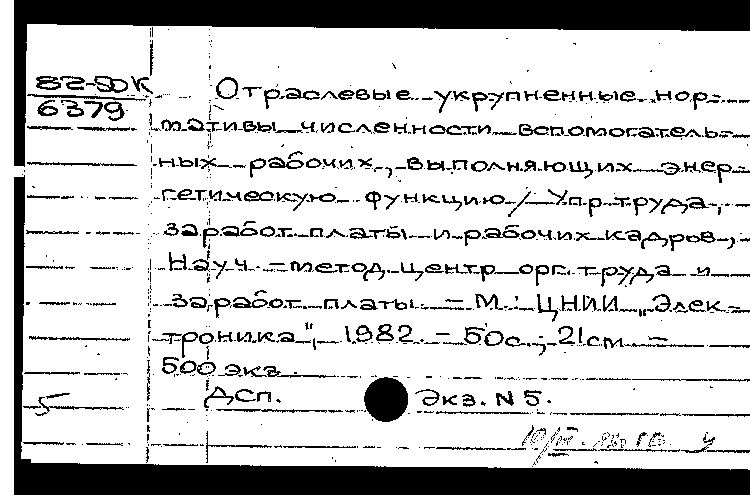 82-50К
6379
Отраслевые укрупненные нор-
мативы численности вспомогатель-
ных рабочих, выполняющих энер-
гетическую функцию / Упр. труда,
заработ. платы и рабочих кадров,
Науч.-метод. центр орг. труда и
заработ. платы. – М.: ЦНИИ „Элек-
троника", 1982. – 50с.; 21см. –
500 экз.
5
Дсп.
Экз. N 5.